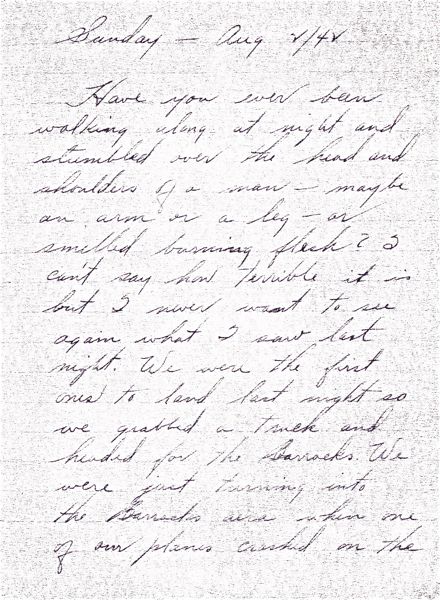 Sunday — Aug 2/42
Have you ever been
walking along at night and
stumbled over the head and
shoulders of a man — maybe
an arm or a leg — or
smelled burning flesh? I
can't say how terrible it is
but I never want to see
again what I saw last
night. We were the first
ones to land last night so
we grabbed a truck and
headed for the Barracks. We
were just turning into
the Barracks area when one
of our planes crashed on the